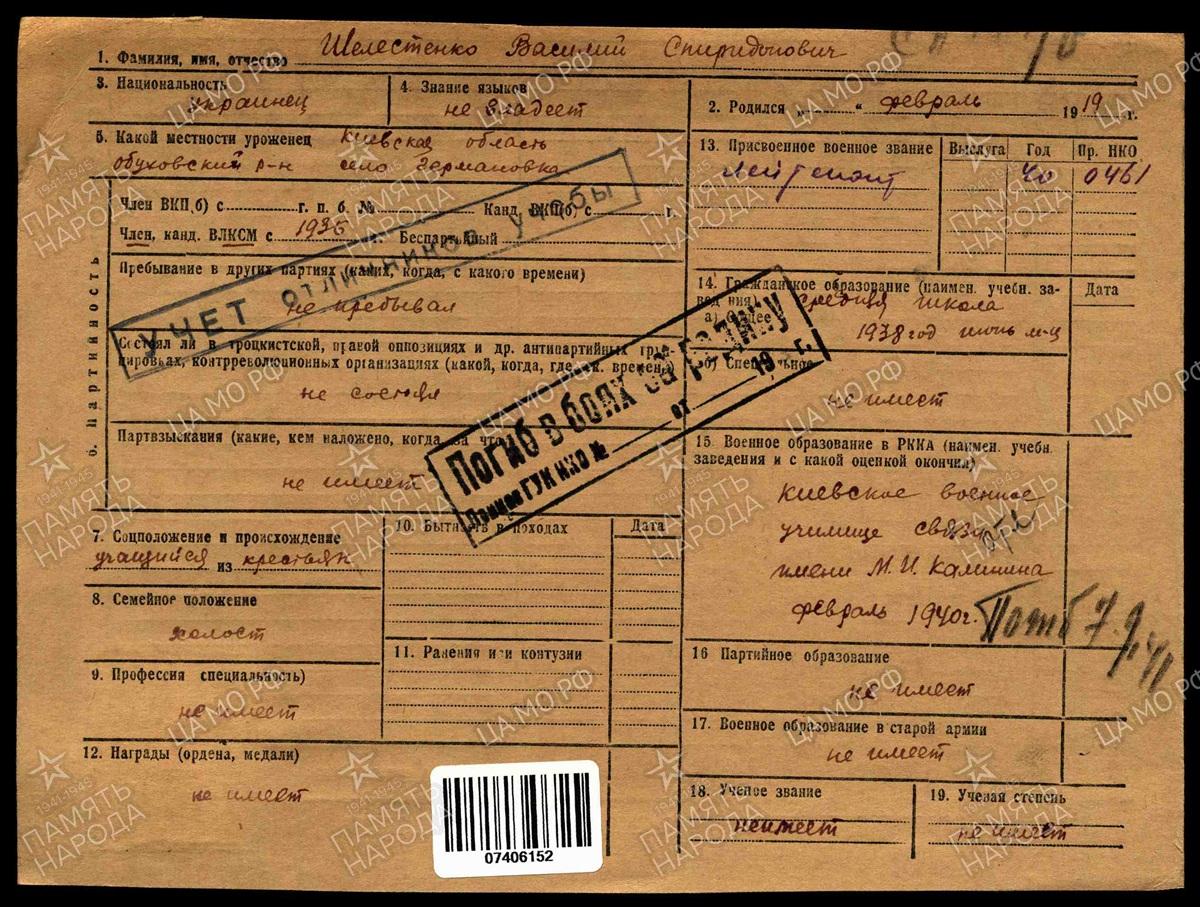 1. Фамилия, имя, отчество Шелестенко Василий Спиридонович
3. Национальность украинец
4. Знание языков не владеет
2. Родился „ “ февраль 1919 г.
5. Какой местности уроженец Киевская область
обуховский р-н село Германовка
13. Присвоенное военное звание Выслуга Год Пр. НКО
лейтенант 40 0461
6. Партийность
Член ВКП(б) с г. п. б. № Канд. ВКП(б) с г.
Член, канд. ВЛКСМ с 1936 г. Беспартийный
УЧЕТ отличников учебы
Пребывание в других партиях (каких, когда, с какого времени)
не пребывал
14. Гражданское образование (наимен. учебн. за-
ведения) Дата
а) Общее средняя школа
1938 год июнь м-ц
Состоял ли в троцкистской, правой оппозициях и др. антипартийных груп-
пировках, контрреволюционных организациях (какой, когда, где, времени)
не состоял
б) Специальное
не имеет
Погиб в боях за родину
Приказ ГУК НКО № от 19 г.
Партвзыскания (какие, кем наложено, когда, за что)
не имеет
15. Военное образование в РККА (наимен. учебн.
заведения и с какой оценкой окончил)
Киевское военное
училище связи
имени М.И. Калинина
февраль 1940г.
Погиб 7.9.41
7. Соцположение и происхождение
учащийся из крестьян
10. Бытность в походах Дата
8. Семейное положение
холост
11. Ранения или контузии
9. Профессия специальность)
не имеет
16 Партийное образование
не имеет
17. Военное образование в старой армии
не имеет
12. Награды (ордена, медали)
не имеет
18. Ученое звание
неимеет
19. Ученая степень
не имеет
07406152
ЦА МО РФ
1941-1945
ПАМЯТЬ
НАРОДА